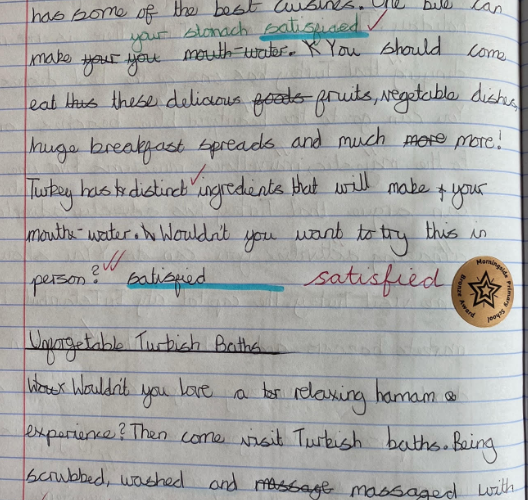 has some of the best cuisines. One bite can
your stomach satisfied
make your you mouth-water. You should come
eat thus these delicious foods fruits, vegetable dishes,
huge breakfast spreads and much more more!
Turkey has distinct ingredients that will make your
mouth-water. Wouldn't you want to try this in
person? satisfied satisfied
Morningside Primary School
Unforgetable Turkish Baths
Wouldn't you love a relaxing hamam
experience? Then come visit Turkish baths. Being
scrubbed, washed and massage massaged with